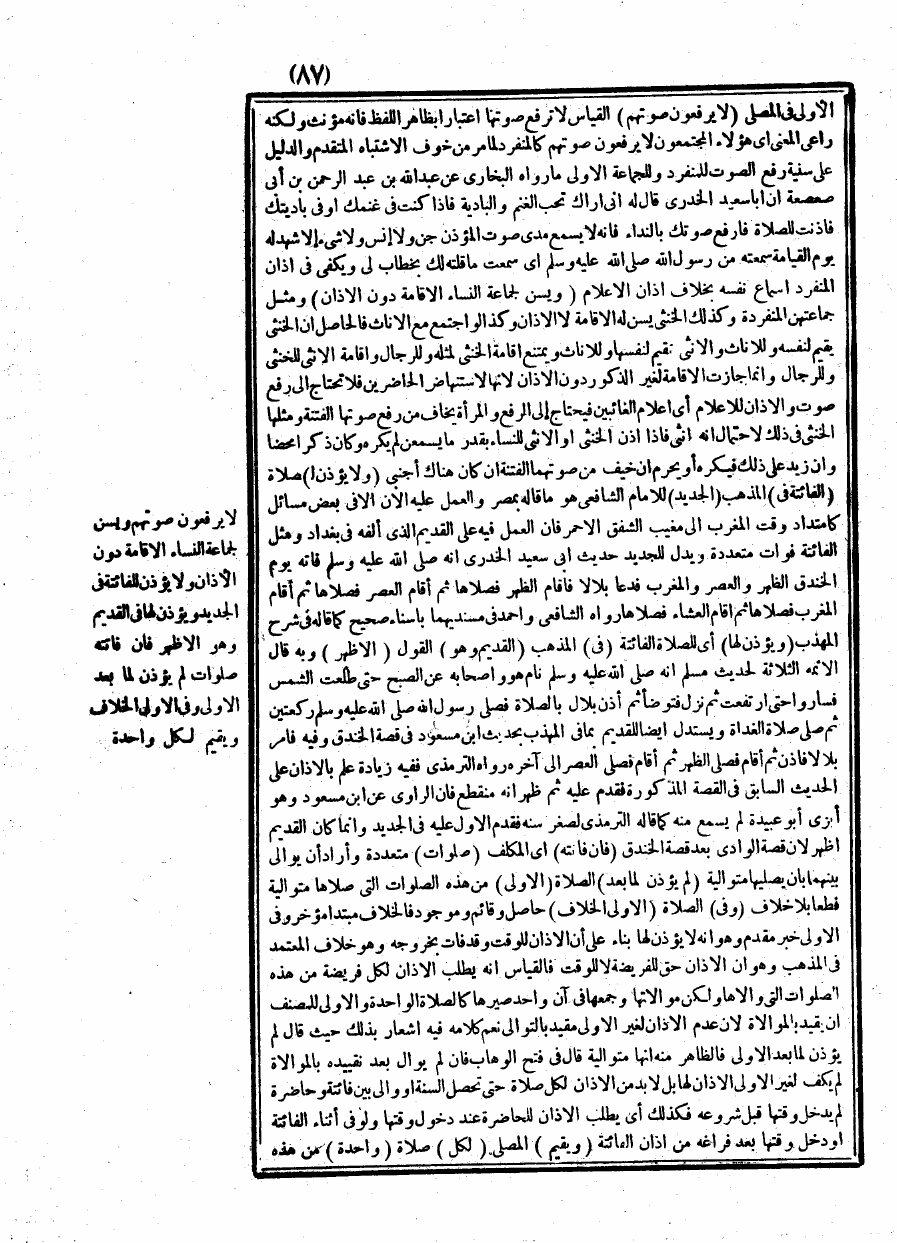 (٨٧)
الاولى فى المصلى (لا يرفعون صوتهم) القياس لا ترفع صوتها اعتبارا بظاهر اللفظ فانه مؤنث ولكنه
راعى المعنى اى هؤلاء المجتمعون لا يرفعون صوتهم كالمنفرد لمامر من خوف الاشتباه المتقدم والدليل
على سنية رفع الصوت للمنفرد وللجماعة الاولى مارواه البخارى عن عبدالله بن عبد الرحمن بن أبى
صعصعة ان اباسعيد الخدرى قال له انى اراك تحب الغنم والبادية فاذا كنت فى غنمك اوفى باديتك
فاذنت للصلاة فارفع صوتك بالنداء فانه لا يسمع مدى صوت المؤذن جن ولا إنس ولا شىء إلا شهد له
يوم القيامة سمعته من رسول الله صلى الله عليه وسلم اى سمعت ماقلته لك بخطاب لى ويكفى فى اذان
المنفرد اسماع نفسه بخلاف اذان الاعلام (ويسن لجماعة النساء الاقامة دون الاذان) ومثل
جماعتهن المنفردة وكذلك الخنثى يسن له الاقامة لا الاذان وكذا لو اجتمع مع الاناث فالحاصل ان الخنثى
يقيم لنفسه وللاناث والانثى تقيم لنفسها وللاناث ويمتنع اقامة الخنثى لمثله وللرجال واقامة الانثى للخنثى
وللرجال وانما جازت الاقامة لغير الذكور دون الاذان لانها لاستنهاض الحاضرين فلا تحتاج الى رفع
صوت والاذان للاعلام أى اعلام الغائبين فيحتاج إلى الرفع والمرأة يخاف من رفع صوتها الفتنة ومثلها
الخنثى فى ذلك لاحتمال انه انثى فاذا اذن الخنثى او الانثى للنساء بقدر مايسمعن لم يكره وكان ذكرا محضا
وان زيد على ذلك فيكره أو يحرم ان خيف من صوتهما الفتنة ان كان هناك أجنبى (ولا يؤذن ا) صلاة
(الفائتة فى) المذهب (الجديد) للامام الشافعى هو ماقاله بمصر والعمل عليه الآن الافى بعض مسائل
كامتداد وقت المغرب الى مغيب الشفق الاحمر فان العمل فيه على القديم الذى ألفه فى بغداد ومثل
الفائتة فوات متعددة ويدل للجديد حديث ابى سعيد الخدرى انه صلى الله عليه وسلم فاته يوم
الخندق الظهر والعصر والمغرب فدعا بلالا فاقام الظهر فصلاها ثم أقام العصر فصلاها ثم أقام
المغرب فصلاها ثم اقام العشاء فصلاها رواه الشافعى واحمد فى مسنديهما باسناد صحيح كماقاله فى شرح
المهذب (ويؤذن لها) أى للصلاة الفائتة (فى) المذهب (القديم وهو) القول (الاظهر) وبه قال
الائمه الثلاثة لحديث مسلم انه صلى الله عليه وسلم نام هو واصحابه عن الصبح حتى طلعت الشمس
فساروا حتى ارتفعت ثم نزل فتوضأ ثم أذن بلال بالصلاة فصلى رسول الله صلى الله عليه وسلم ركعتين
ثم صلى صلاة الغداة ويستدل ايضا للقديم بمافى المهذب بحديث ابن مسعود فى قصة الخندق وفيه فامر
بلالا فاذن ثم أقام فصلى الظهر ثم أقام فصلى العصر الى آخره رواه الترمذى ففيه زيادة علم بالاذان على
الحديث السابق فى القصة المذكورة فقدم عليه ثم ظهر انه منقطع فان الراوى عن ابن مسعود وهو
أبزى أبو عبيدة لم يسمع منه كماقاله الترمذى لصغر سنه فقدم الاول عليه فى الجديد وانما كان القديم
اظهر لان قصة الوادى بعد قصة الخندق (فان فاتته) اى المكلف (صلوات) متعددة وأراد أن يوالى
بينهما بان يصليها متوالية (لم يؤذن لما بعد) الصلاة (الاولى) من هذه الصلوات التى صلاها متوالية
قطعا بلاخلاف (وفى) الصلاة (الاولى الخلاف) حاصل وقائم وموجود فالخلاف مبتدا مؤخر وفى
الاولى خبر مقدم وهو انه لا يؤذن لها بناء على أن الاذان للوقت وقدفات بخروجه وهو خلاف المعتمد
فى المذهب وهو ان الاذان حق للفريضة لا للوقت فالقياس انه يطلب الاذان لكل فريضة من هذه
الصلوات التى والاها ولكن موالاتها وجمعها فى آن واحد صيرها كالصلاة الواحدة والاولى للمصنف
ان يقيد بالموالاة لان عدم الاذان لغير الاولى مقيد بالتوالى نعم كلامه فيه اشعار بذلك حيث قال لم
يؤذن لما بعد الاولى فالظاهر منه انها متوالية قال فى فتح الوهاب فان لم يوال بعد تقييده بالموالاة
لم يكف لغير الاولى الاذان لها بل لابد من الاذان لكل صلاة حتى تحصل السنة او والى بين فائتة وحاضرة
لم يدخل وقتها قبل شروعه فكذلك أى يطلب الاذان للحاضرة عند دخول وقتها ولو فى أثناء الفائتة
او دخل وقتها بعد فراغه من اذان الفائتة (ويقيم) المصلى (لكل) صلاة (واحدة) من هذه
لا يرفعون صوتهم ويسن
لجماعة النساء الاقامة دون
الاذان ولا يؤذن للفائتة فى
الجديد ويؤذن لها فى القديم
وهو الاظهر فان فاتته
صلوات لم يؤذن لما بعد
الاولى وفى الاولى الخلاف
ويقيم لكل واحدة